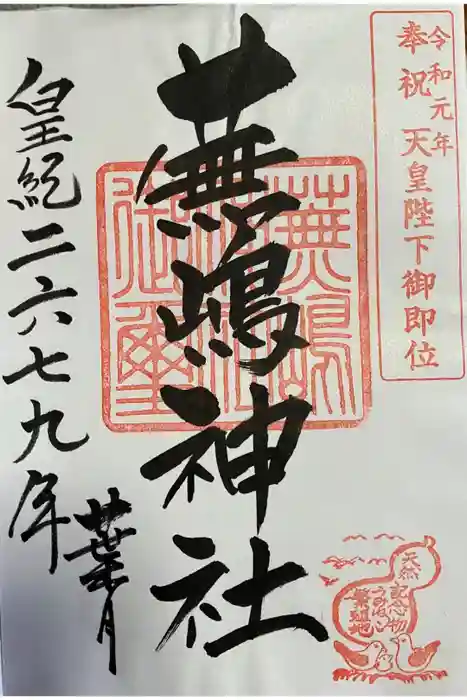 奉祝
令和元年
天皇陛下御即位
蕪嶋神社
蕪嶋
神社
御璽
皇紀二六七九年
葉月
天然
記念物
うみねこ
繁殖地